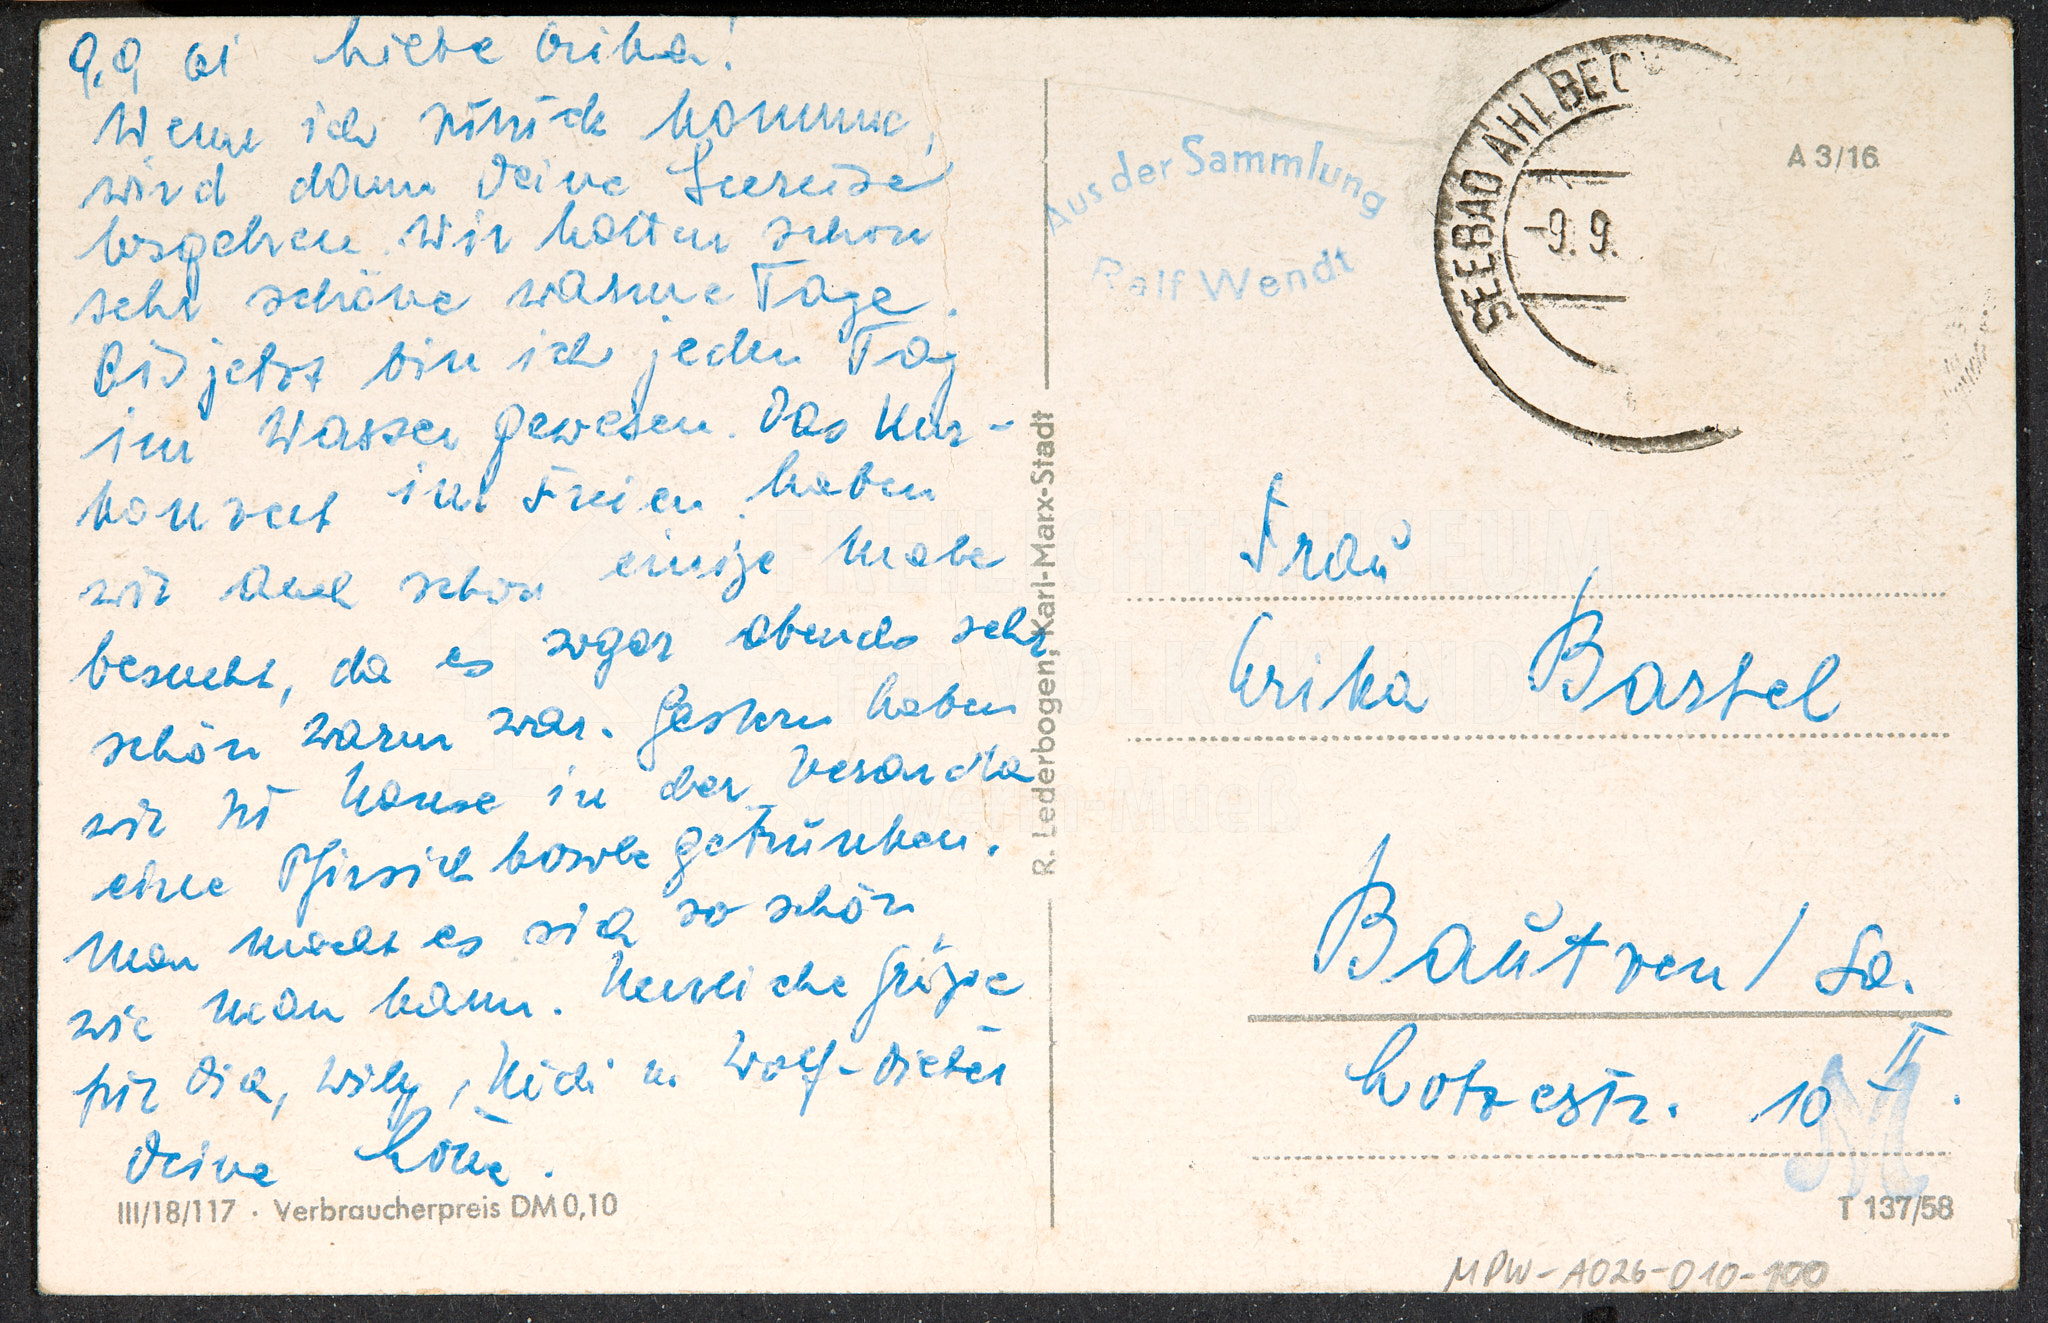 9.9 61 Liebe Erika!
Wenn ich zurück komme,
wird dann Deine Seereise
losgehen. Wir hatten schon
sehr schöne warme Tage.
Bis jetzt bin ich jeden Tag
im Wasser gewesen. Das Kur-
konzert im Freien haben
wir auch schon einige Male
besucht, da es sogar abends sehr
schön warm war. Gestern haben
wir zu Hause in der Veranda
eine Pfirsichbowle getrunken.
Man macht es sich so schön
wie man kann. Herzliche Grüße
für Dich, Willy, Heidi u. Wolf-Dieter
Deine Lotte.
III/18/117 · Verbraucherpreis DM 0,10
R. Lederbogen, Karl-Marx-Stadt
Aus der Sammlung
Ralf Wendt
SEEBAD AHLBECK
-9. 9.
A 3/16
FREILICHTMUSEUM
VOLKSKUNDE
Schwerin-Mueß
Frau
Erika Bartel
Bautzen / Sa.
Lotzestr. 10 II.
M
T 137/58
MPW-A026-010-100